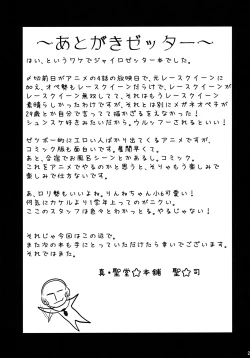 ～あとがきゼッター～
はい、というワケでジャイロゼッター本でした。
〆切前日がアニメの4話の放映日で、元レースクイーンに
加え、オペ勢もレースクイーンだらけで、レースクイーンが
レースクイーン無双してて、それはもうレースクイーン
素晴らしかったわけですが、それとは別にメガネオペ子が
29歳とか自分で言ってて描かざるをえなかった！
シュンスケ好きみたいだから、ウルッフーされるといい！
ゼツボー的にエロい人ばかり出てくるアニメですが、
コミック版も面白いです。展開早くて。
あと、合宿でお風呂シーンとかあるし。コミック。
これをアニメでやるのかと思うと、そりゃもう楽しみで
楽しみで仕方ないです。
あ、ロリ勢もいいよね。りんねちゃん小6可愛い！
何気にカケルより1学年上ってのがニクい。
ここのスタッフは色々とわかっとる。やるじゃない！
それじゃ今回はこの辺で。
また次の本も手にとっていただけたら幸いでございます。
それではまた。
真・聖堂☆本舗　聖☆司